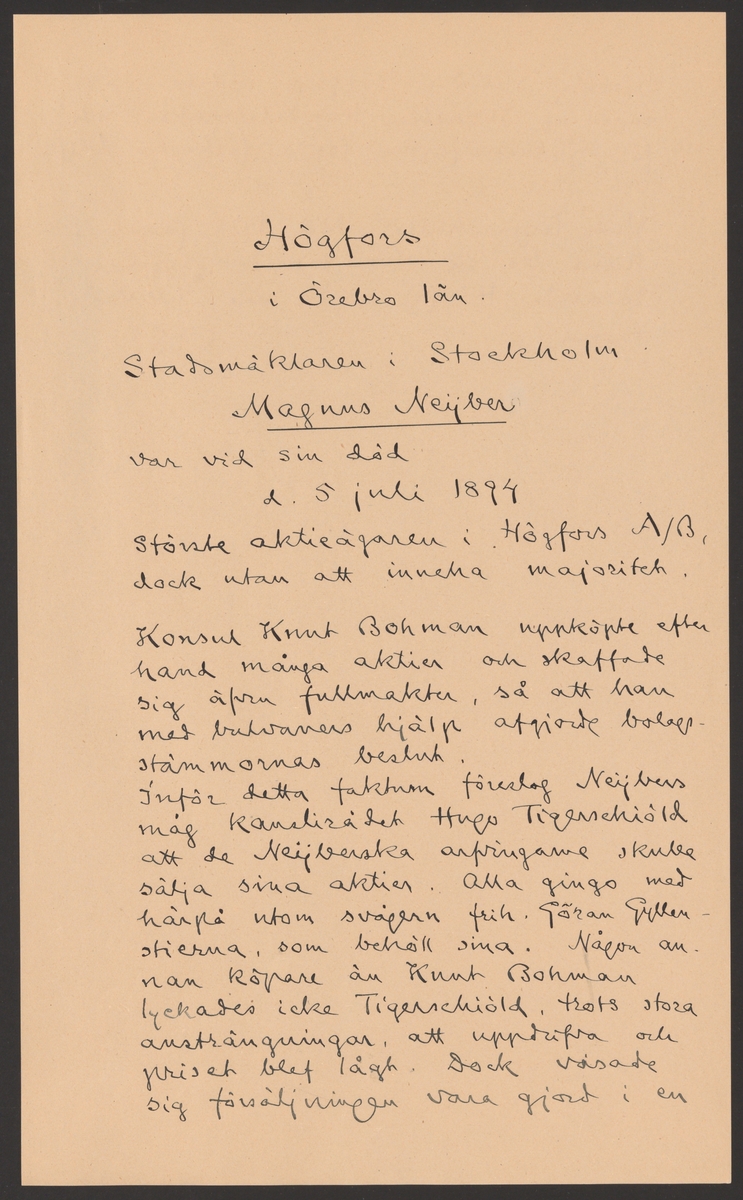 Högfors
i Örebro län.
Stadsmäklaren i Stockholm
Magnus Neijber
var vid sin död
d. 5 juli 1894
Störste aktieägaren i Högfors A/B,
dock utan att inneha majoritet.
Konsul Knut Bohman uppköpte efter
hand många aktier och skaffade
sig äfven fullmakter, så att han
med bulvaners hjälp afgjorde bolags-
stämmornas beslut.
Inför detta faktum föreslog Neijbers
måg kanslirådet Hugo Tigerschiöld
att de Neijberska arfvingarne skulle
sälja sina aktier. Alla gingo med
härpå utom svågern frih. Göran Gyllen-
stierna, som behöll sina. Någon an-
nan köpare än Knut Bohman
lyckades icke Tigerschiöld, trots stora
ansträngningar, att uppdrifva och
priset blef lågt. Dock visade
sig försäljningen vara gjord i en